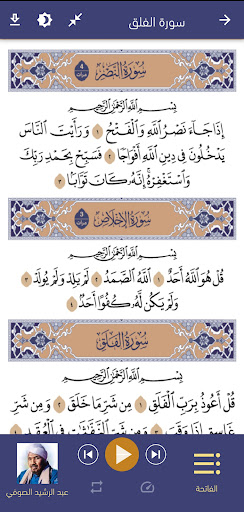 سورة الفلق
سُورَةُ النَّصْرِ
بِسْمِ اللَّهِ الرَّحْمَٰنِ الرَّحِيمِ
إِذَا جَاءَ نَصْرُ اللَّهِ وَالْفَتْحُ ١ وَرَأَيْتَ النَّاسَ
يَدْخُلُونَ فِي دِينِ اللَّهِ أَفْوَاجًا ٢ فَسَبِّحْ بِحَمْدِ رَبِّكَ
وَاسْتَغْفِرْهُ إِنَّهُ كَانَ تَوَّابًا ٣
سُورَةُ الإِخْلَاصِ
بِسْمِ اللَّهِ الرَّحْمَٰنِ الرَّحِيمِ
قُلْ هُوَ اللَّهُ أَحَدٌ ١ اللَّهُ الصَّمَدُ ٢ لَمْ يَلِدْ وَلَمْ يُولَدْ ٣
وَلَمْ يَكُن لَّهُ كُفُوًا أَحَدٌ ٤
سُورَةُ الْفَلَقِ
بِسْمِ اللَّهِ الرَّحْمَٰنِ الرَّحِيمِ
قُلْ أَعُوذُ بِرَبِّ الْفَلَقِ ١ مِن شَرِّ مَا خَلَقَ ٢ وَمِن شَرِّ
غَاسِقٍ إِذَا وَقَبَ ٣ وَمِن شَرِّ النَّفَّاثَاتِ فِي الْعُقَدِ
الفاتحة
عبد الرشيد الصوفي